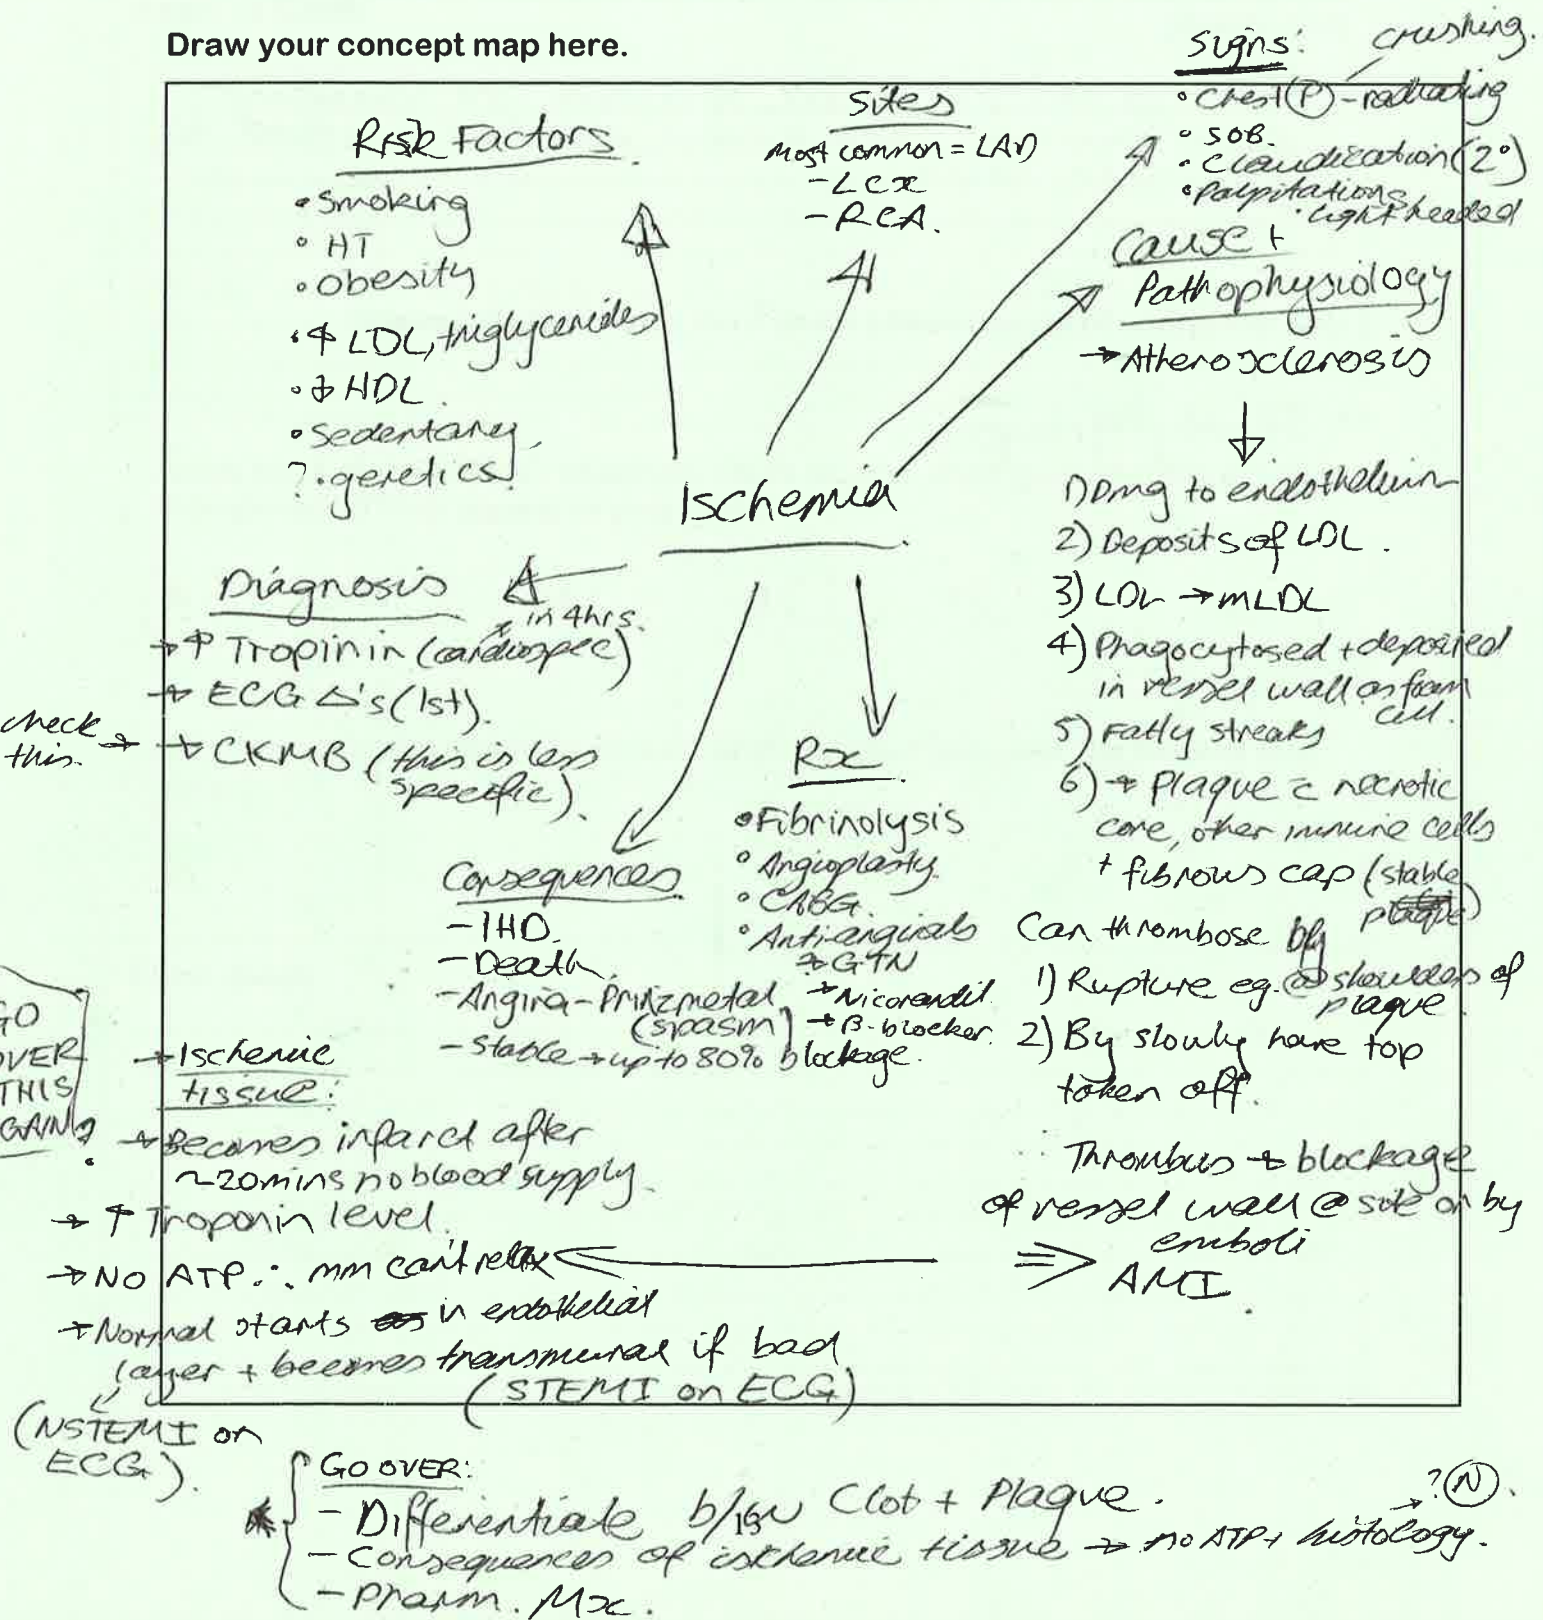 Draw your concept map here.
Signs: crushing.
• Chest (P) - radiating
• SOB.
• Claudication (2°)
• Palpitations
• light headed
Sites
Most common = LAD
- LCx
- RCA.
Risk Factors
• Smoking
• HT
• Obesity
• ↑ LDL, triglycerides
• ↓ HDL.
• Sedentary
? • genetics
Cause +
Pathophysiology
→ Atherosclerosis
↓
1) Dmg to endothelium
2) Deposits of LDL.
3) LDL → mLDL
4) Phagocytosed + deposited
in vessel wall as foam
cell.
5) Fatty streaks
6) → Plaque c necrotic
core, other immune cells
+ fibrous cap (stable
plaque)
Can thrombose by
1) Rupture eg. @ shoulders of
plaque
2) By slowly have top
taken off.
Thrombus → blockage
of vessel wall @ site or by
emboli
⇒ AMI.
Ischemia
Diagnosis
in 4hrs.
→ ↑ Tropinin (cardiospec)
→ ECG Δ's (1st).
check this. →
→ CKMB (this is less
specific).
Rx
• Fibrinolysis
• Angioplasty.
• CABG.
• Anti-anginals
→ GTN
→ Nicorandil
→ β-blocker.
Consequences
- IHD.
- Death.
- Angina - Prinzmetal
(spasm)
- Stable → up to 80% blockage.
GO
OVER
THIS
AGAIN?
→ Ischemic
tissue:
→ Becomes infarct after
~20mins no blood supply.
→ ↑ Troponin level.
→ No ATP ∴ mm can't relax
→ Normal starts in endothelial
layer + becomes transmural if bad
(STEMI on ECG)
(NSTEMI on
ECG).
GO OVER:
- Differentiate b/w Clot + Plaque.
- Consequences of ischemic tissue → no ATP + histology. → ? (N).
- Pharm. Mx.